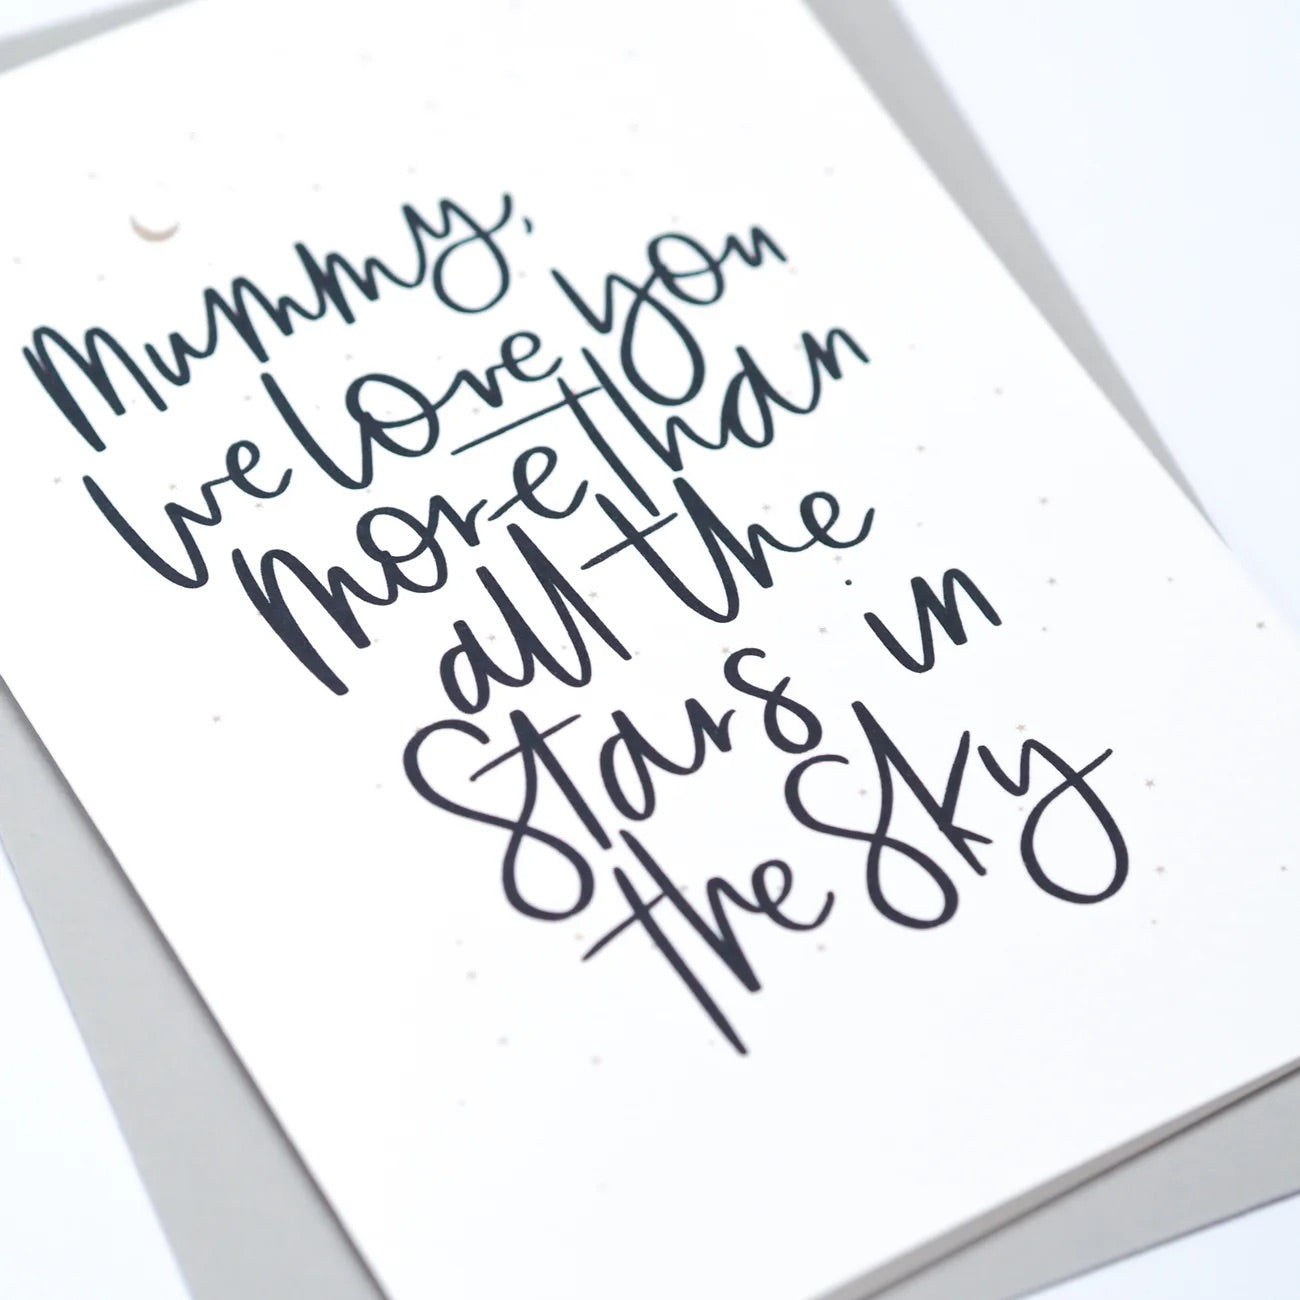 Mummy,
we love you
more than
all the
Stars in
the Sky